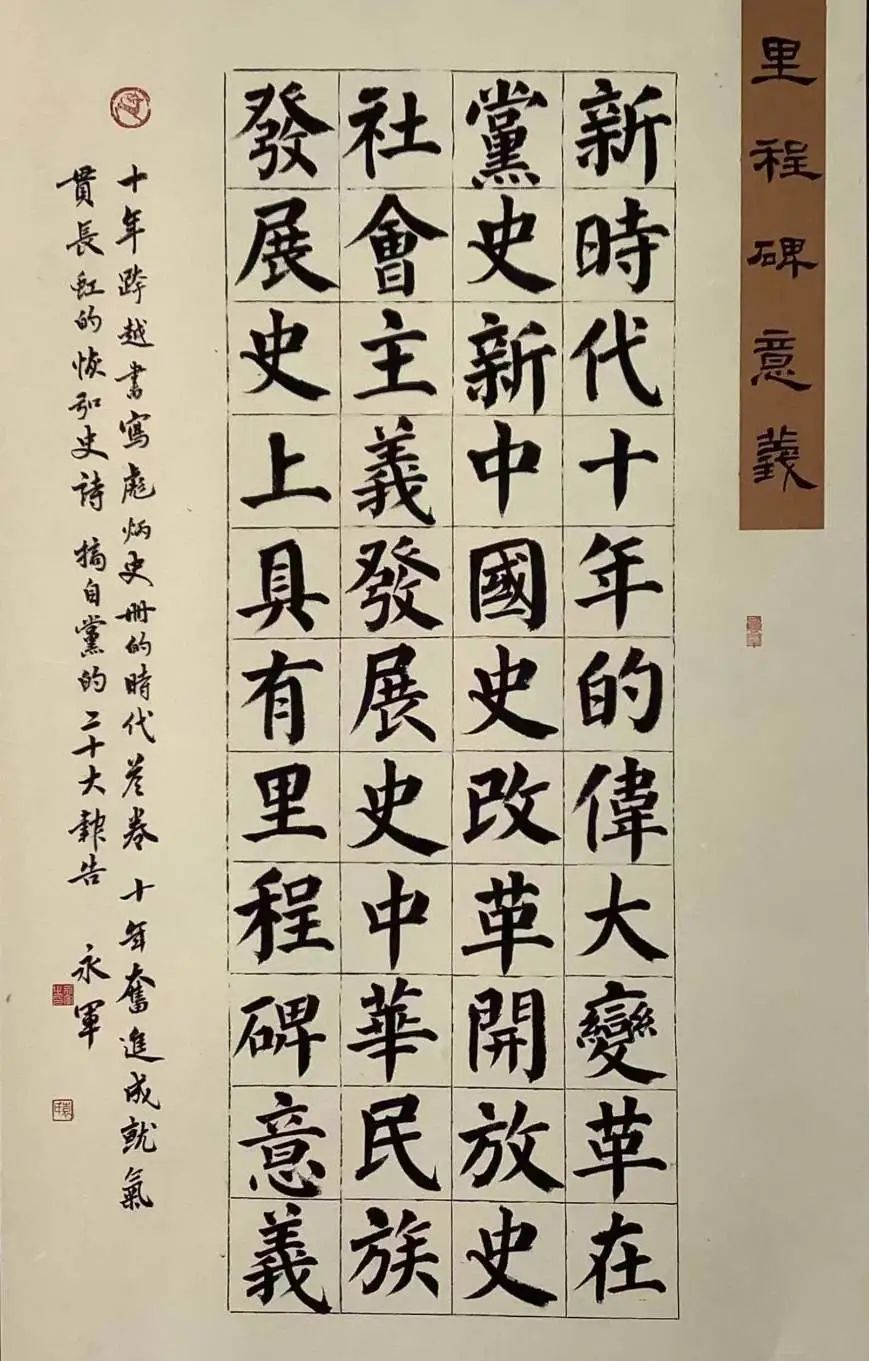 里程碑意義
新時代十年的偉大變革在
黨史新中國史改革開放史
社會主義發展史中華民族
發展史上具有里程碑意義
十年跨越書寫彪炳史冊的時代答卷 十年奮進成就氣
貫長虹的恢弘史詩 摘自黨的二十大報告 永軍